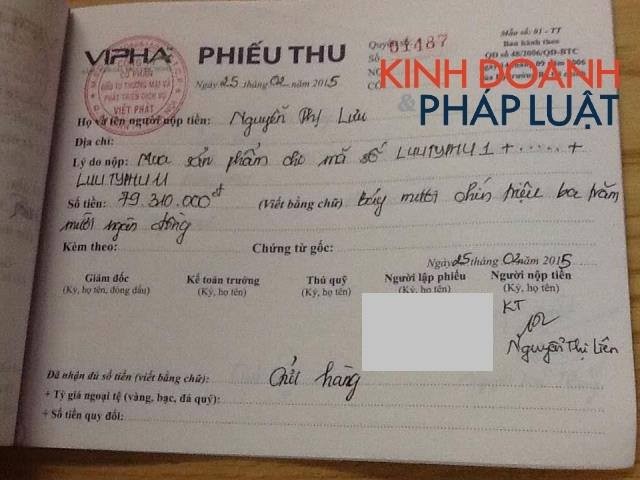 VIPHA
PHIẾU THU
Quyển số:
Số 01487
Mẫu số: 01 - TT
Ban hành theo
QĐ số 48/2006/QĐ-BTC
CỔ PHẦN
ĐẦU TƯ THƯƠNG MẠI VÀ
PHÁT TRIỂN DỊCH VỤ
VIỆT PHÁT
Ngày 25 tháng 02 năm 2015
KINH DOANH
& PHÁP LUẬT
Họ và tên người nộp tiền: Nguyễn Thị Lưu
Địa chỉ:
Lý do nộp: Mua sản phẩm cho mã số LUUTYPHU 1 + ..... +
LUUTYPHU 11
Số tiền: 79.310.000đ (Viết bằng chữ) bảy mươi chín triệu ba trăm
mười ngàn đồng
Kèm theo: Chứng từ gốc:
Ngày 25 tháng 02 năm 2015
Giám đốc Kế toán trưởng Thủ quỹ Người lập phiếu Người nộp tiền
(Ký, họ tên, đóng dấu) (Ký, họ tên) (Ký, họ tên) (Ký, họ tên) (Ký, họ tên)
KT
Nguyễn Thị Liên
Đã nhận đủ số tiền (viết bằng chữ): Gửi hàng
+ Tỷ giá ngoại tệ (vàng, bạc, đá quý):
+ Số tiền quy đổi: